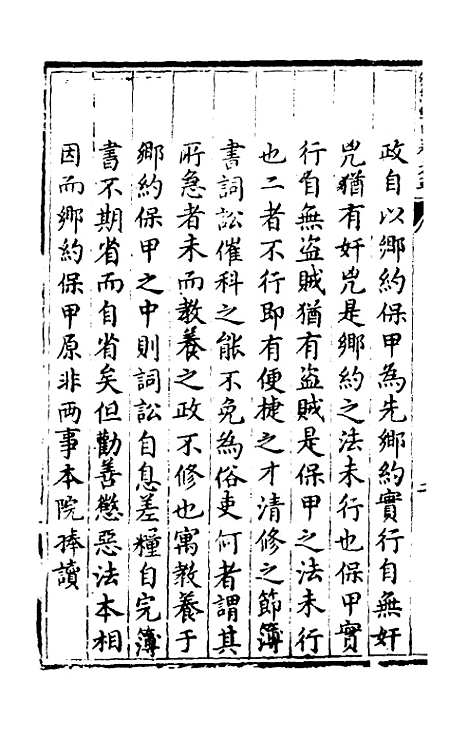 政自以鄉約保甲為先鄉約實行自無奸
宄猶有奸宄是鄉約之法未行也保甲實
行自無盜賊猶有盜賊是保甲之法未行
也二者不行即有便捷之才清修之節簿
書詞訟催科之能不免為俗吏何者謂其
所急者末而教養之政不修也寓教養于
鄉約保甲之中則詞訟自息差糧自完簿
書不期省而自省矣但勸善懲惡法本相
因而鄉約保甲原非兩事本院捧讀